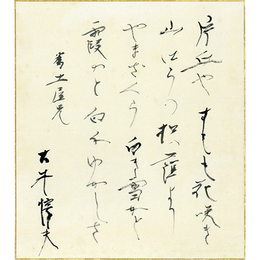 片丘や すもも花咲き
山ほらの 松の蔭より
やまざくら 白き雲かと
霞かと 白 ゆかしき
土屋兄
大木惇夫